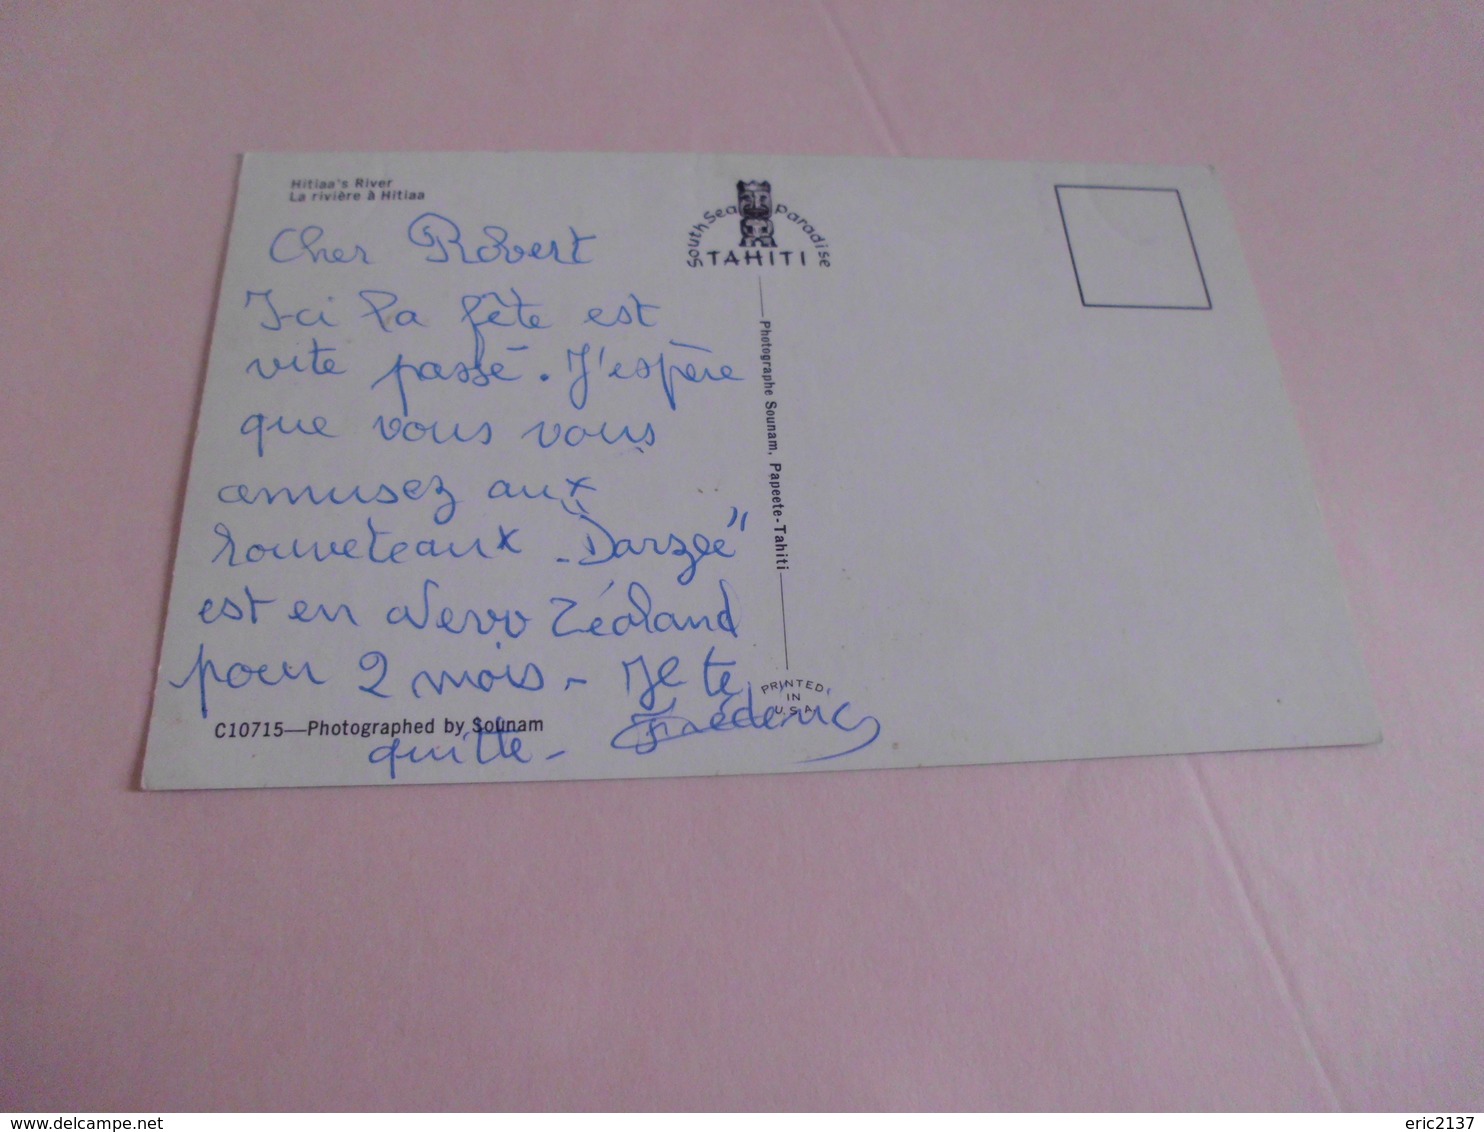 Hitiaa's River
La rivière à Hitiaa
South Sea Paradise
TAHITI
Cher Robert
I-ci la fête est
vite passé. J'espère
que vous vous
amusez aux
louveteaux - "Darzee"
est en Nevv Zéaland
pour 2 mois - Je te
quitte - Frédéric
C10715—Photographed by Sounam
Photographe Sounam, Papeete-Tahiti
PRINTED
IN
U.S.A.
eric2137